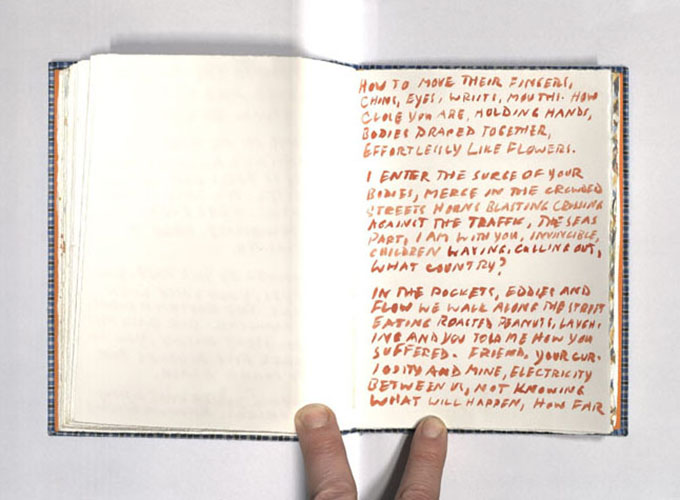 HOW TO MOVE THEIR FINGERS,
CHINS, EYES, WRISTS, MOUTHS. HOW
CLOSE YOU ARE, HOLDING HANDS,
BODIES DRAPED TOGETHER,
EFFORTLESSLY LIKE FLOWERS.
I ENTER THE SURGE OF YOUR
BODIES, MERGE IN THE CROWDED
STREETS HORNS BLASTING CROSSING
AGAINST THE TRAFFIC, THE SEAS
PART, I AM WITH YOU, INVINCIBLE,
CHILDREN WAVING, CALLING OUT,
WHAT COUNTRY?
IN THE POCKETS, EDDIES AND
FLOW WE WALK ALONG THE STREET
EATING ROASTED PEANUTS, LAUGH-
ING AND YOU TOLD ME HOW YOU
SUFFERED. FRIEND, YOUR CUR-
IOSITY AND MINE, ELECTRICITY
BETWEEN US, NOT KNOWING
WHAT WILL HAPPEN, HOW FAR